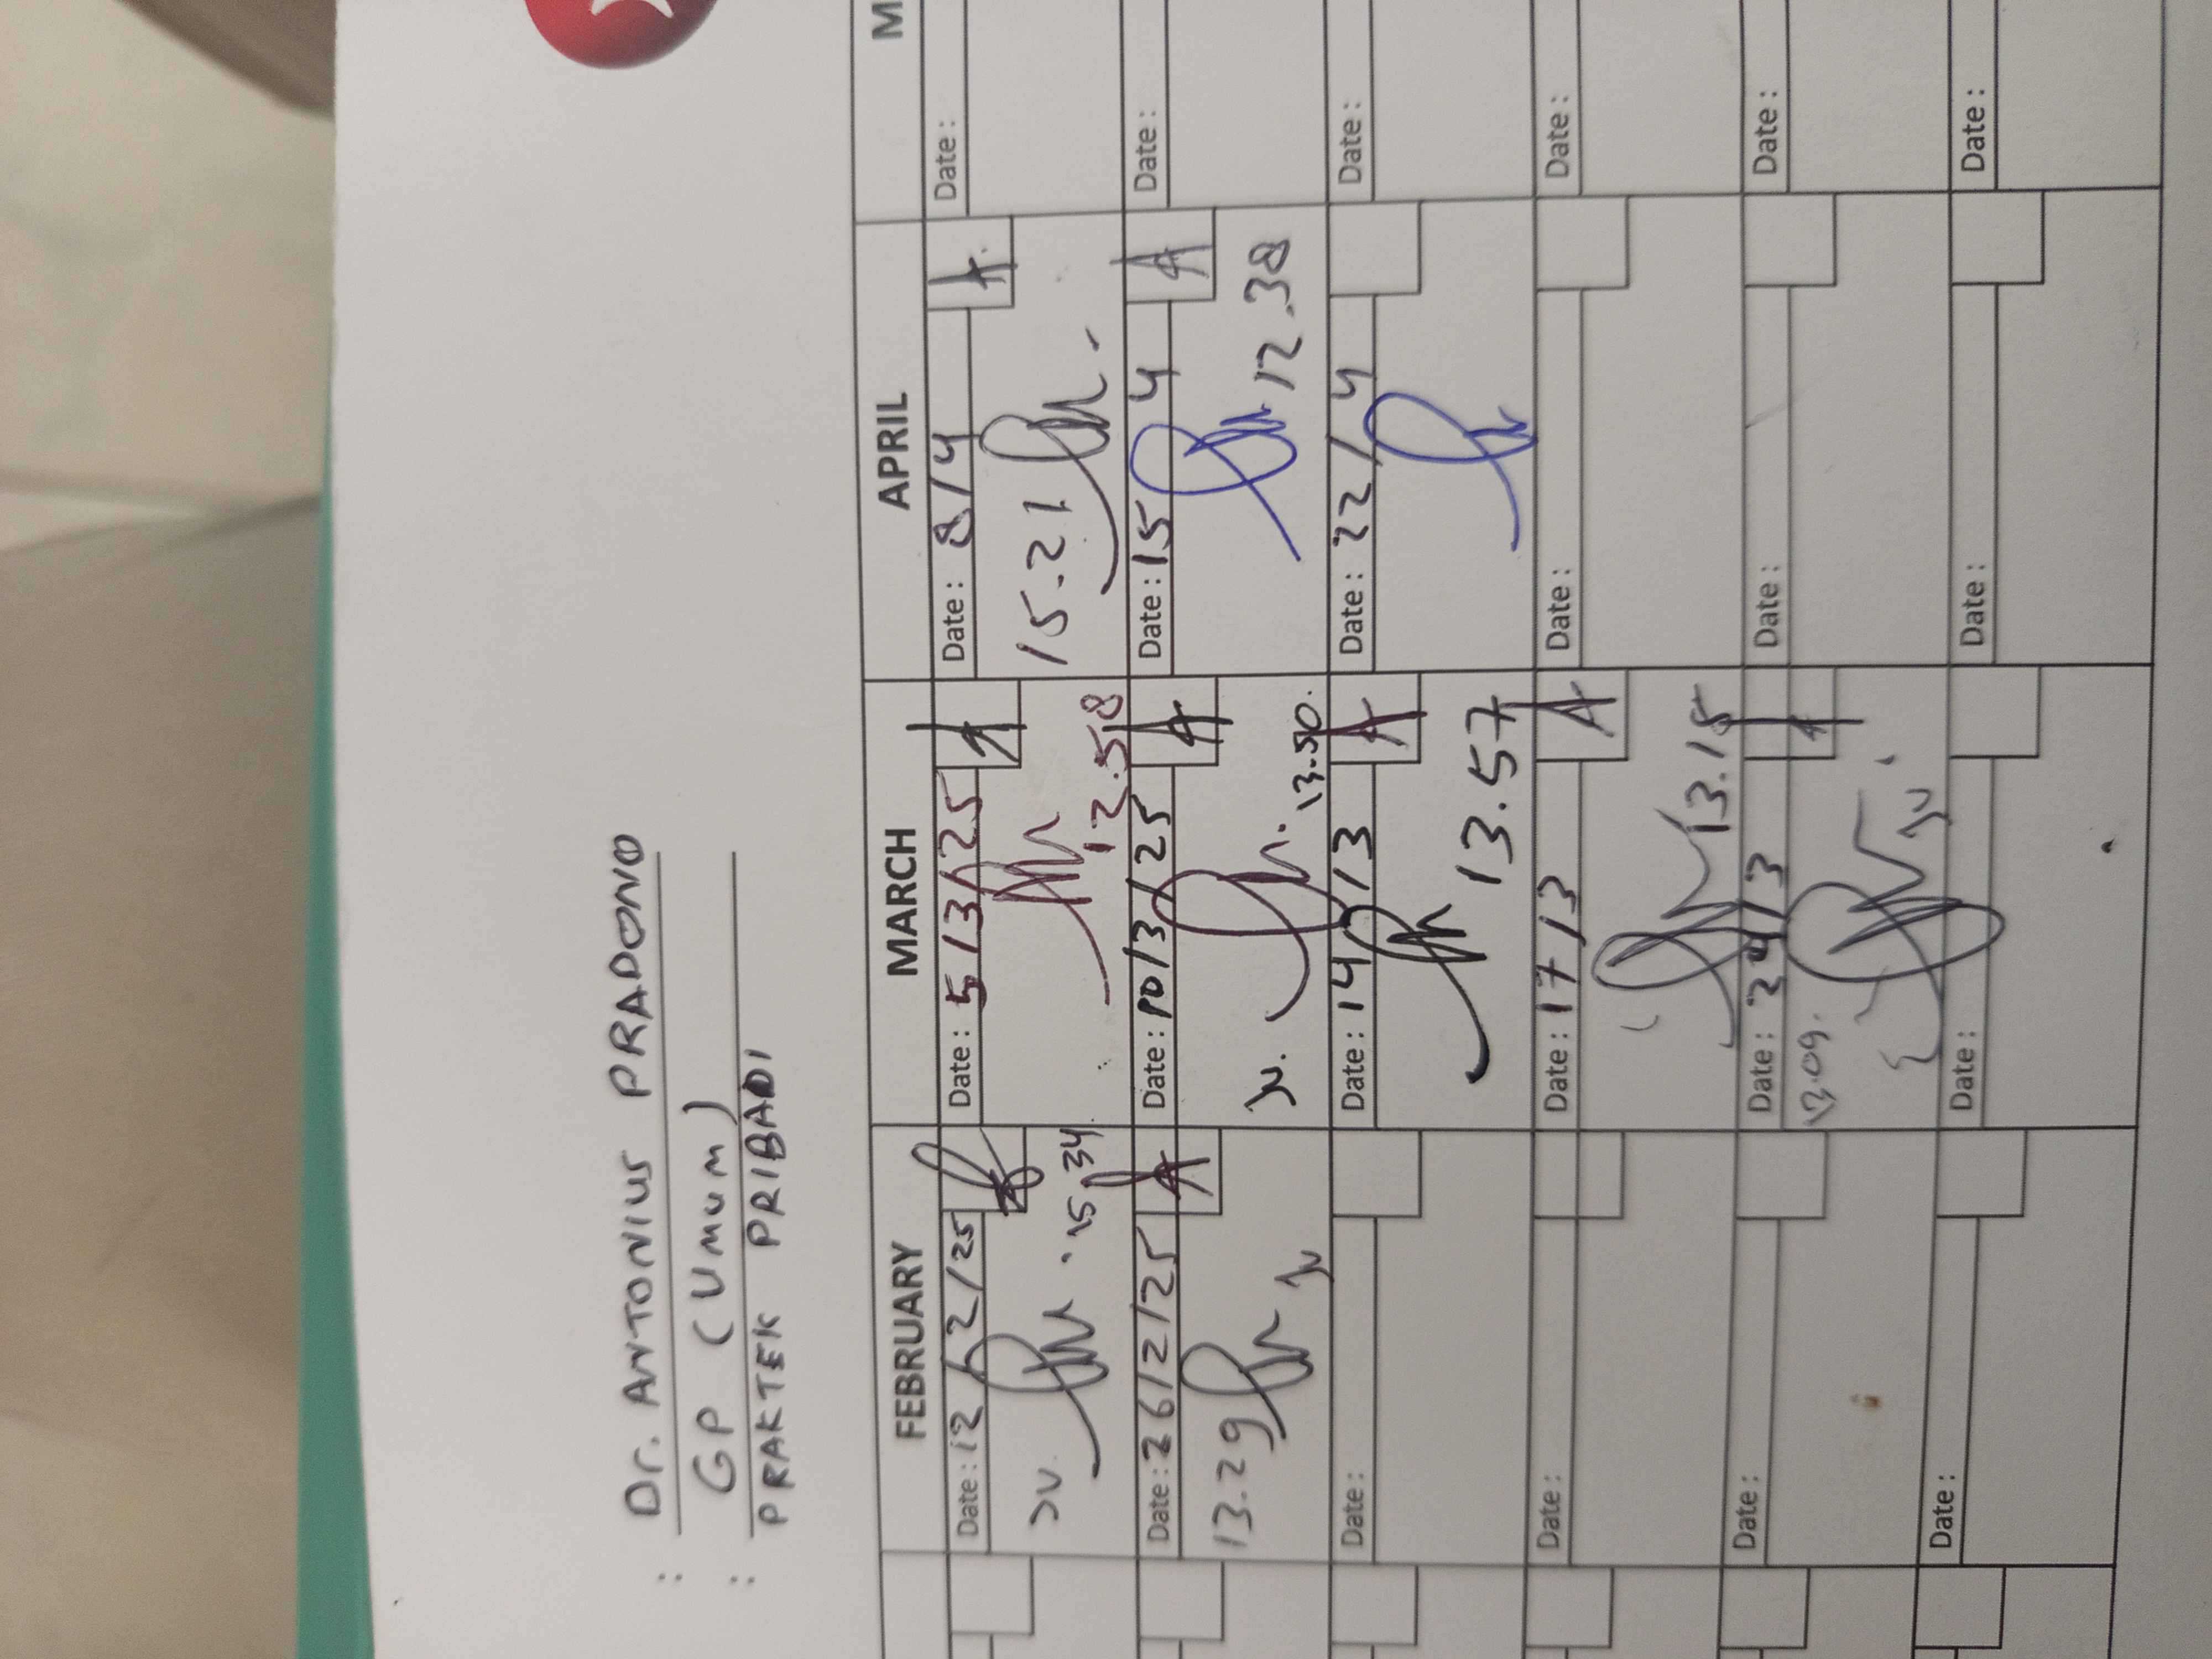 : Dr. ANTONIUS PRADONO
: GP (Umum)
PRAKTEK PRIBADI
FEBRUARY MARCH APRIL M
Date: 12/2/25 Date: 5/3/25 Date: 8/4 Date:
15.34 12.58 15.21
Date: 26/2/25 Date: 10/3/25 Date: 15 4 Date:
13.29 13.50. 12.38
Date: Date: 14/3 Date: 22/4 Date:
13.57
Date: Date: 17/3 Date: Date:
13.15
Date: Date: 24/3 Date: Date:
13.09.
Date: Date: Date: Date: